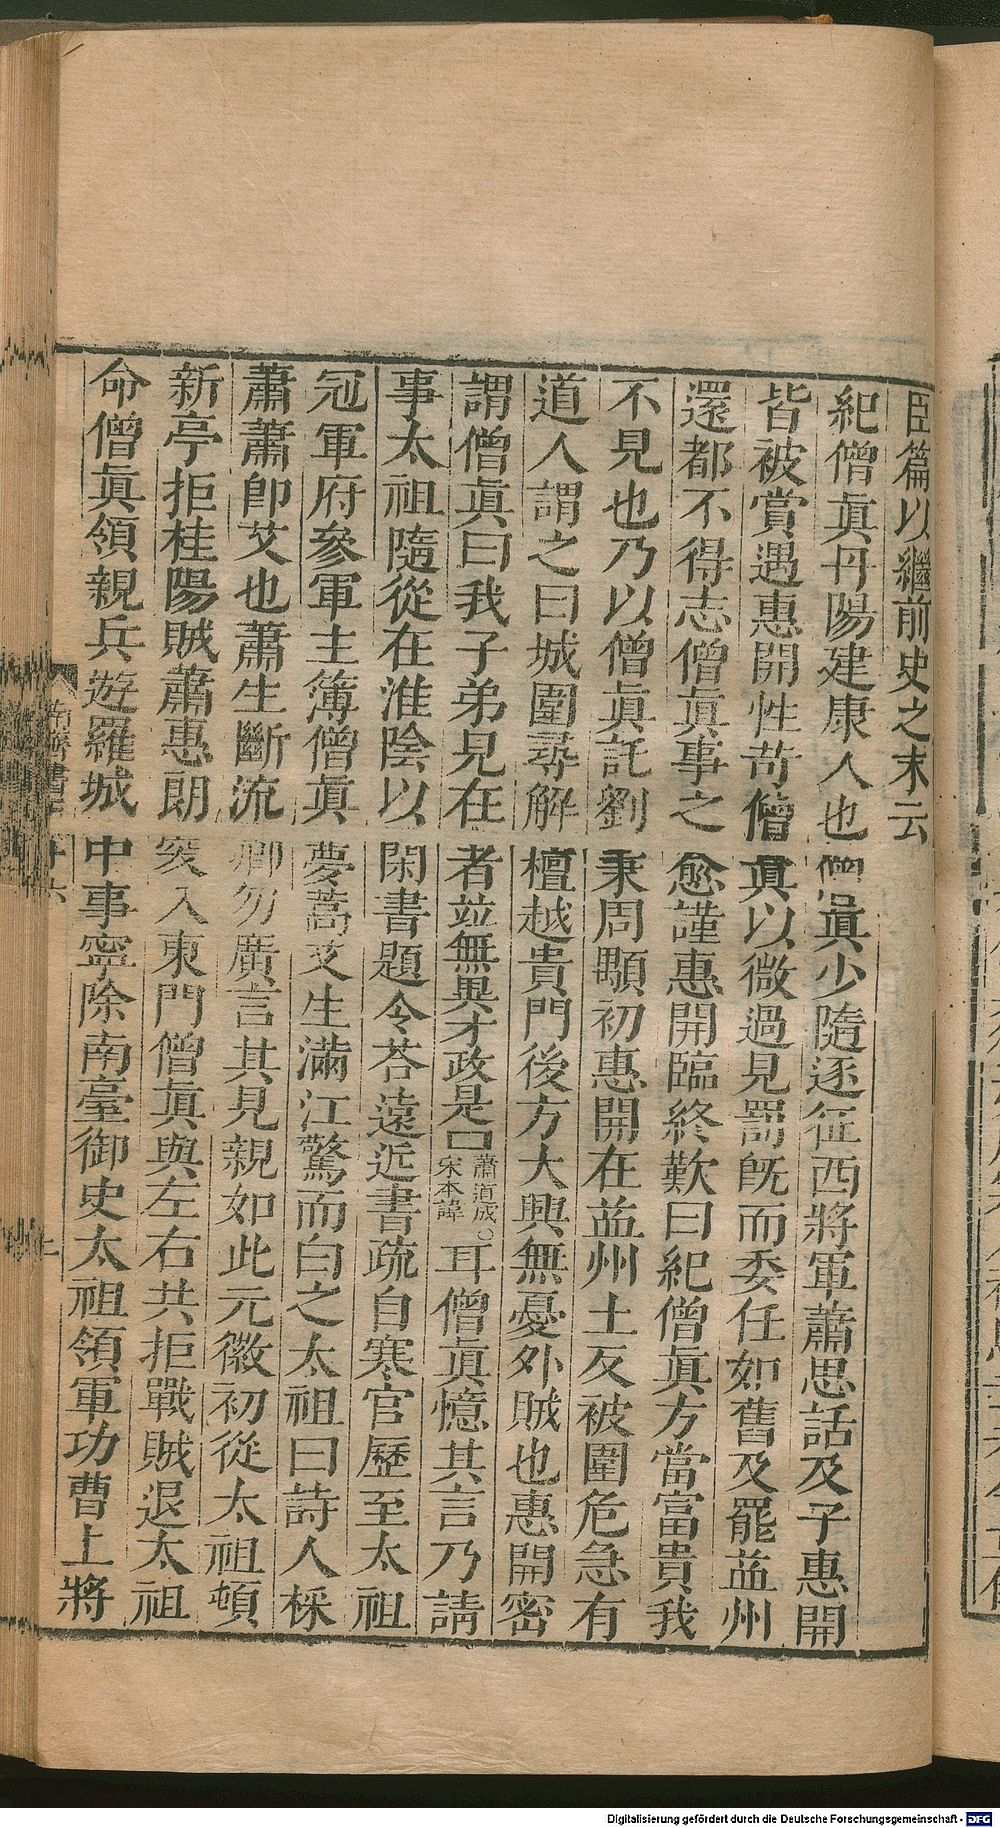 臣篇以繼前史之末云
紀僧眞丹陽建康人也僧眞少隨逐征西將軍蕭思話及子惠開
皆被賞遇惠開性苛僧眞以微過見罰旣而委任如舊及罷益州
還都不得志僧眞事之愈謹惠開臨終歎曰紀僧眞方當富貴我
不見也乃以僧眞託劉秉周顒初惠開在益州土反被圍危急有
道人謂之曰城圍尋解檀越貴門後方大興無憂外賊也惠開密
謂僧眞曰我子弟見在者並無異才政是口蕭道成○宋本諱耳僧眞憶其言乃請
事太祖隨從在淮陰以閑書題令荅遠近書疏自寒官歷至太祖
冠軍府參軍主簿僧眞夢蒿艾生滿江驚而白之太祖曰詩人採
蕭蕭卽艾也蕭生斷流卿勿廣言其見親如此元徽初從太祖頓
新亭拒桂陽賊蕭惠朗突入東門僧眞與左右共拒戰賊退太祖
命僧眞領親兵遊羅城中事寧除南臺御史太祖領軍功曹上將
Digitalisierung gefördert durch die Deutsche Forschungsgemeinschaft - DFG